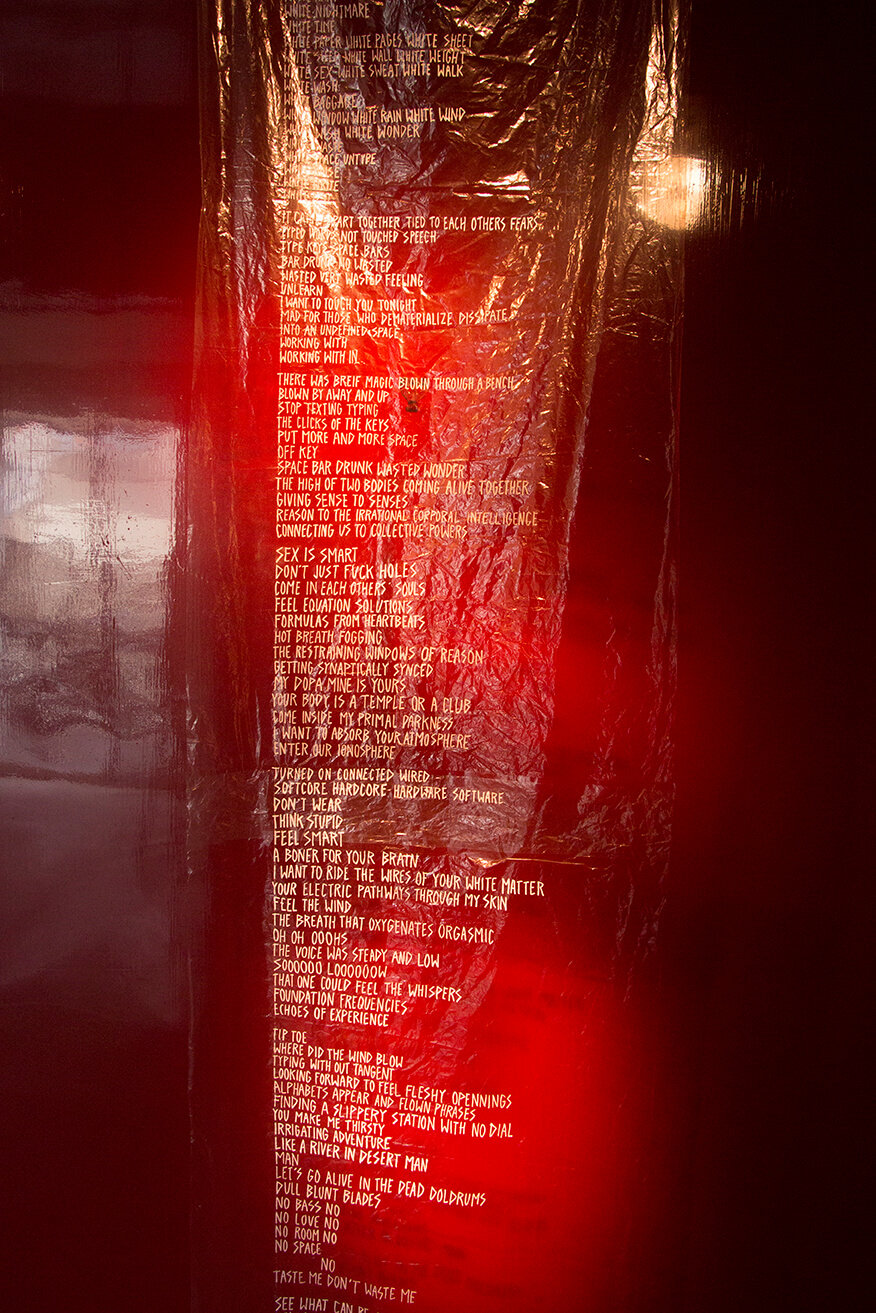 WHITE NIGHTMARE
WHITE TIME
WHITE PAPER WHITE PAGES WHITE SHEET
WHITE WALL WHITE WEIGHT
WHITE SEX WHITE SWEAT WHITE WALK
WHITE WASH
WHITE BAGGAGE
WINDOW WHITE RAIN WHITE WIND
WHITE WONDER
SPACE UNTYPE
IT CAME APART TOGETHER TIED TO EACH OTHERS FEARS
TYPED WORDS NOT TOUCHED SPEECH
TYPE KEYS SPACE BARS
BAR DRUNK NO WASTED
WASTED VERY WASTED FEELING
UNLEARN
I WANT TO TOUCH YOU TONIGHT
MAD FOR THOSE WHO DEMATERIALIZE DISSIPATE
INTO AN UNDEFINED SPACE
WORKING WITH
WORKING WITH IN
THERE WAS BREIF MAGIC BLOWN THROUGH A BENCH
BLOWN BY AWAY AND UP
STOP TEXTING TYPING
THE CLICKS OF THE KEYS
PUT MORE AND MORE SPACE
OFF KEY
SPACE BAR DRUNK WASTED WONDER
THE HIGH OF TWO BODIES COMING ALIVE TOGETHER
GIVING SENSE TO SENSES
REASON TO THE IRRATIONAL CORPORAL INTELLIGENCE
CONNECTING US TO COLLECTIVE POWERS
SEX IS SMART
DON'T JUST FUCK HOLES
COME IN EACH OTHERS SOULS
FEEL EQUATION SOLUTIONS
FORMULAS FROM HEARTBEATS
HOT BREATH FOGGING
THE RESTRAINING WINDOWS OF REASON
GETTING SYNAPTICALLY SYNCED
MY DOPA MINE IS YOURS
YOUR BODY IS A TEMPLE OR A CLUB
COME INSIDE MY PRIMAL DARKNESS
I WANT TO ABSORB YOUR ATMOSPHERE
ENTER OUR IONOSPHERE
TURNED ON CONNECTED WIRED
SOFTCORE HARDCORE-HARDWARE SOFTWARE
DON'T WEAR
THINK STUPID
FEEL SMART
A BONER FOR YOUR BRAIN
I WANT TO RIDE THE WIRES OF YOUR WHITE MATTER
YOUR ELECTRIC PATHWAYS THROUGH MY SKIN
FEEL THE WIND
THE BREATH THAT OXYGENATES ORGASMIC
OH OH OOOHS
THE VOICE WAS STEADY AND LOW
SOOOOOO LOOOOOOW
THAT ONE COULD FEEL THE WHISPERS
FOUNDATION FREQUENCIES
ECHOES OF EXPERIENCE
TIP TOE
WHERE DID THE WIND BLOW
TYPING WITH OUT TANGENT
LOOKING FORWARD TO FEEL FLESHY OPENNINGS
ALPHABETS APPEAR AND FLOWN PHRASES
FINDING A SLIPPERY STATION WITH NO DIAL
YOU MAKE ME THIRSTY
IRRIGATING ADVENTURE
LIKE A RIVER IN DESERT MAN
MAN
LET'S GO ALIVE IN THE DEAD DOLDRUMS
DULL BLUNT BLADES
NO BASS NO
NO LOVE NO
NO ROOM NO
NO SPACE
NO
TASTE ME DON'T WASTE ME
SEE WHAT CAN BE